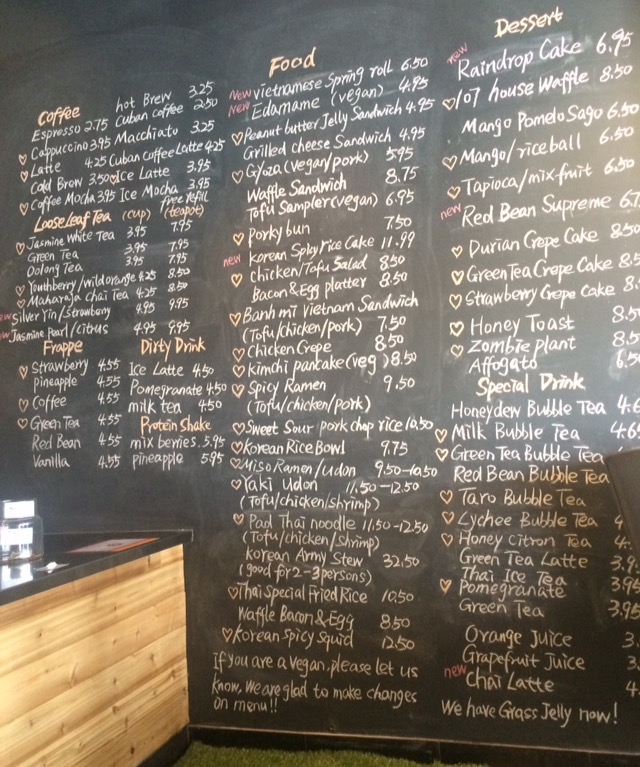 Coffee
hot Brew 3.25
Espresso 2.75 Cuban coffee 2.50
Cappuccino 3.95 Macchiato 3.25
Latte 4.25 Cuban Coffee Latte 4.25
Cold Brew 3.50 Ice Latte 3.95
Coffee Mocha 3.95 Ice Mocha 3.95
Loose Leaf Tea (cup) free refill (teapot)
Jasmine White Tea 3.95 7.95
Green Tea 3.95 7.95
Oolong Tea 3.95 7.95
Youthberry/wild orange 4.25 8.50
Maharaja Chai Tea 4.25 8.50
Silver Yin/Strawberry 4.95 9.95
Jasmine Pearl/citrus 4.95 9.95
Frappe
Strawberry 4.55
pineapple 4.55
Coffee 4.55
Green Tea 4.55
Red Bean 4.55
Vanilla 4.55
Dirty Drink
Ice Latte 4.50
Pomegranate 4.50
milk tea 4.50
Protein Shake
mix berries 5.95
pineapple 5.95
Food
New Vietnamese Spring roll 6.50
New Edamame (vegan) 4.95
Peanut butter Jelly Sandwich 4.95
Grilled cheese Sandwich 4.95
Gyoza (vegan/pork) 5.95
Waffle Sandwich 8.75
Tofu Sampler (vegan) 6.95
Porky bun 7.50
new Korean Spicy Rice Cake 11.99
Chicken/Tofu Salad 8.50
Bacon & Egg platter 8.50
Banh mi vietnam Sandwich
(Tofu/chicken/pork) 7.50
Chicken Crepe 8.50
kimchi pancake (veg) 8.50
Spicy Ramen 9.50
(Tofu/chicken/pork)
Sweet Sour pork chop rice 10.50
Korean Rice Bowl 9.75
Miso Ramen/udon 9.50-10.50
Yaki udon 11.50-12.50
(Tofu/chicken/shrimp)
Pad Thai noodle 11.50-12.50
(Tofu/chicken/shrimp)
Korean Army Stew 32.50
(good for 2-3 persons)
Thai Special Fried Rice 10.50
Waffle Bacon & Egg 8.50
Korean Spicy Squid 12.50
If you are a vegan. please let us
know, we are glad to make changes
on menu!!
Dessert
new
Raindrop Cake 6.95
107 house Waffle 8.50
Mango Pomelo Sago 6.50
Mango/rice ball 6.50
Tapioca/mix-fruit 6.50
new Red Bean Supreme 6.7
Durian Crepe Cake 8.50
Green Tea Crepe Cake 8.5
Strawberry Crepe Cake 8.
Honey Toast 8.5
Zombie plant 8.5
Affogato 6.5
Special Drink
Honeydew Bubble Tea 4.6
Milk Bubble Tea 4.6
Green Tea Bubble Tea
Red Bean Bubble Tea
Taro Bubble Tea
Lychee Bubble Tea 4
Honey Citron Tea 4.
Green Tea Latte 3.9
Thai Ice Tea 3.95
Pomegranate
Green Tea 3.95
Orange Juice 3.
Grapefruit Juice 3.
new Chai Latte 4.
We have Grass Jelly now!